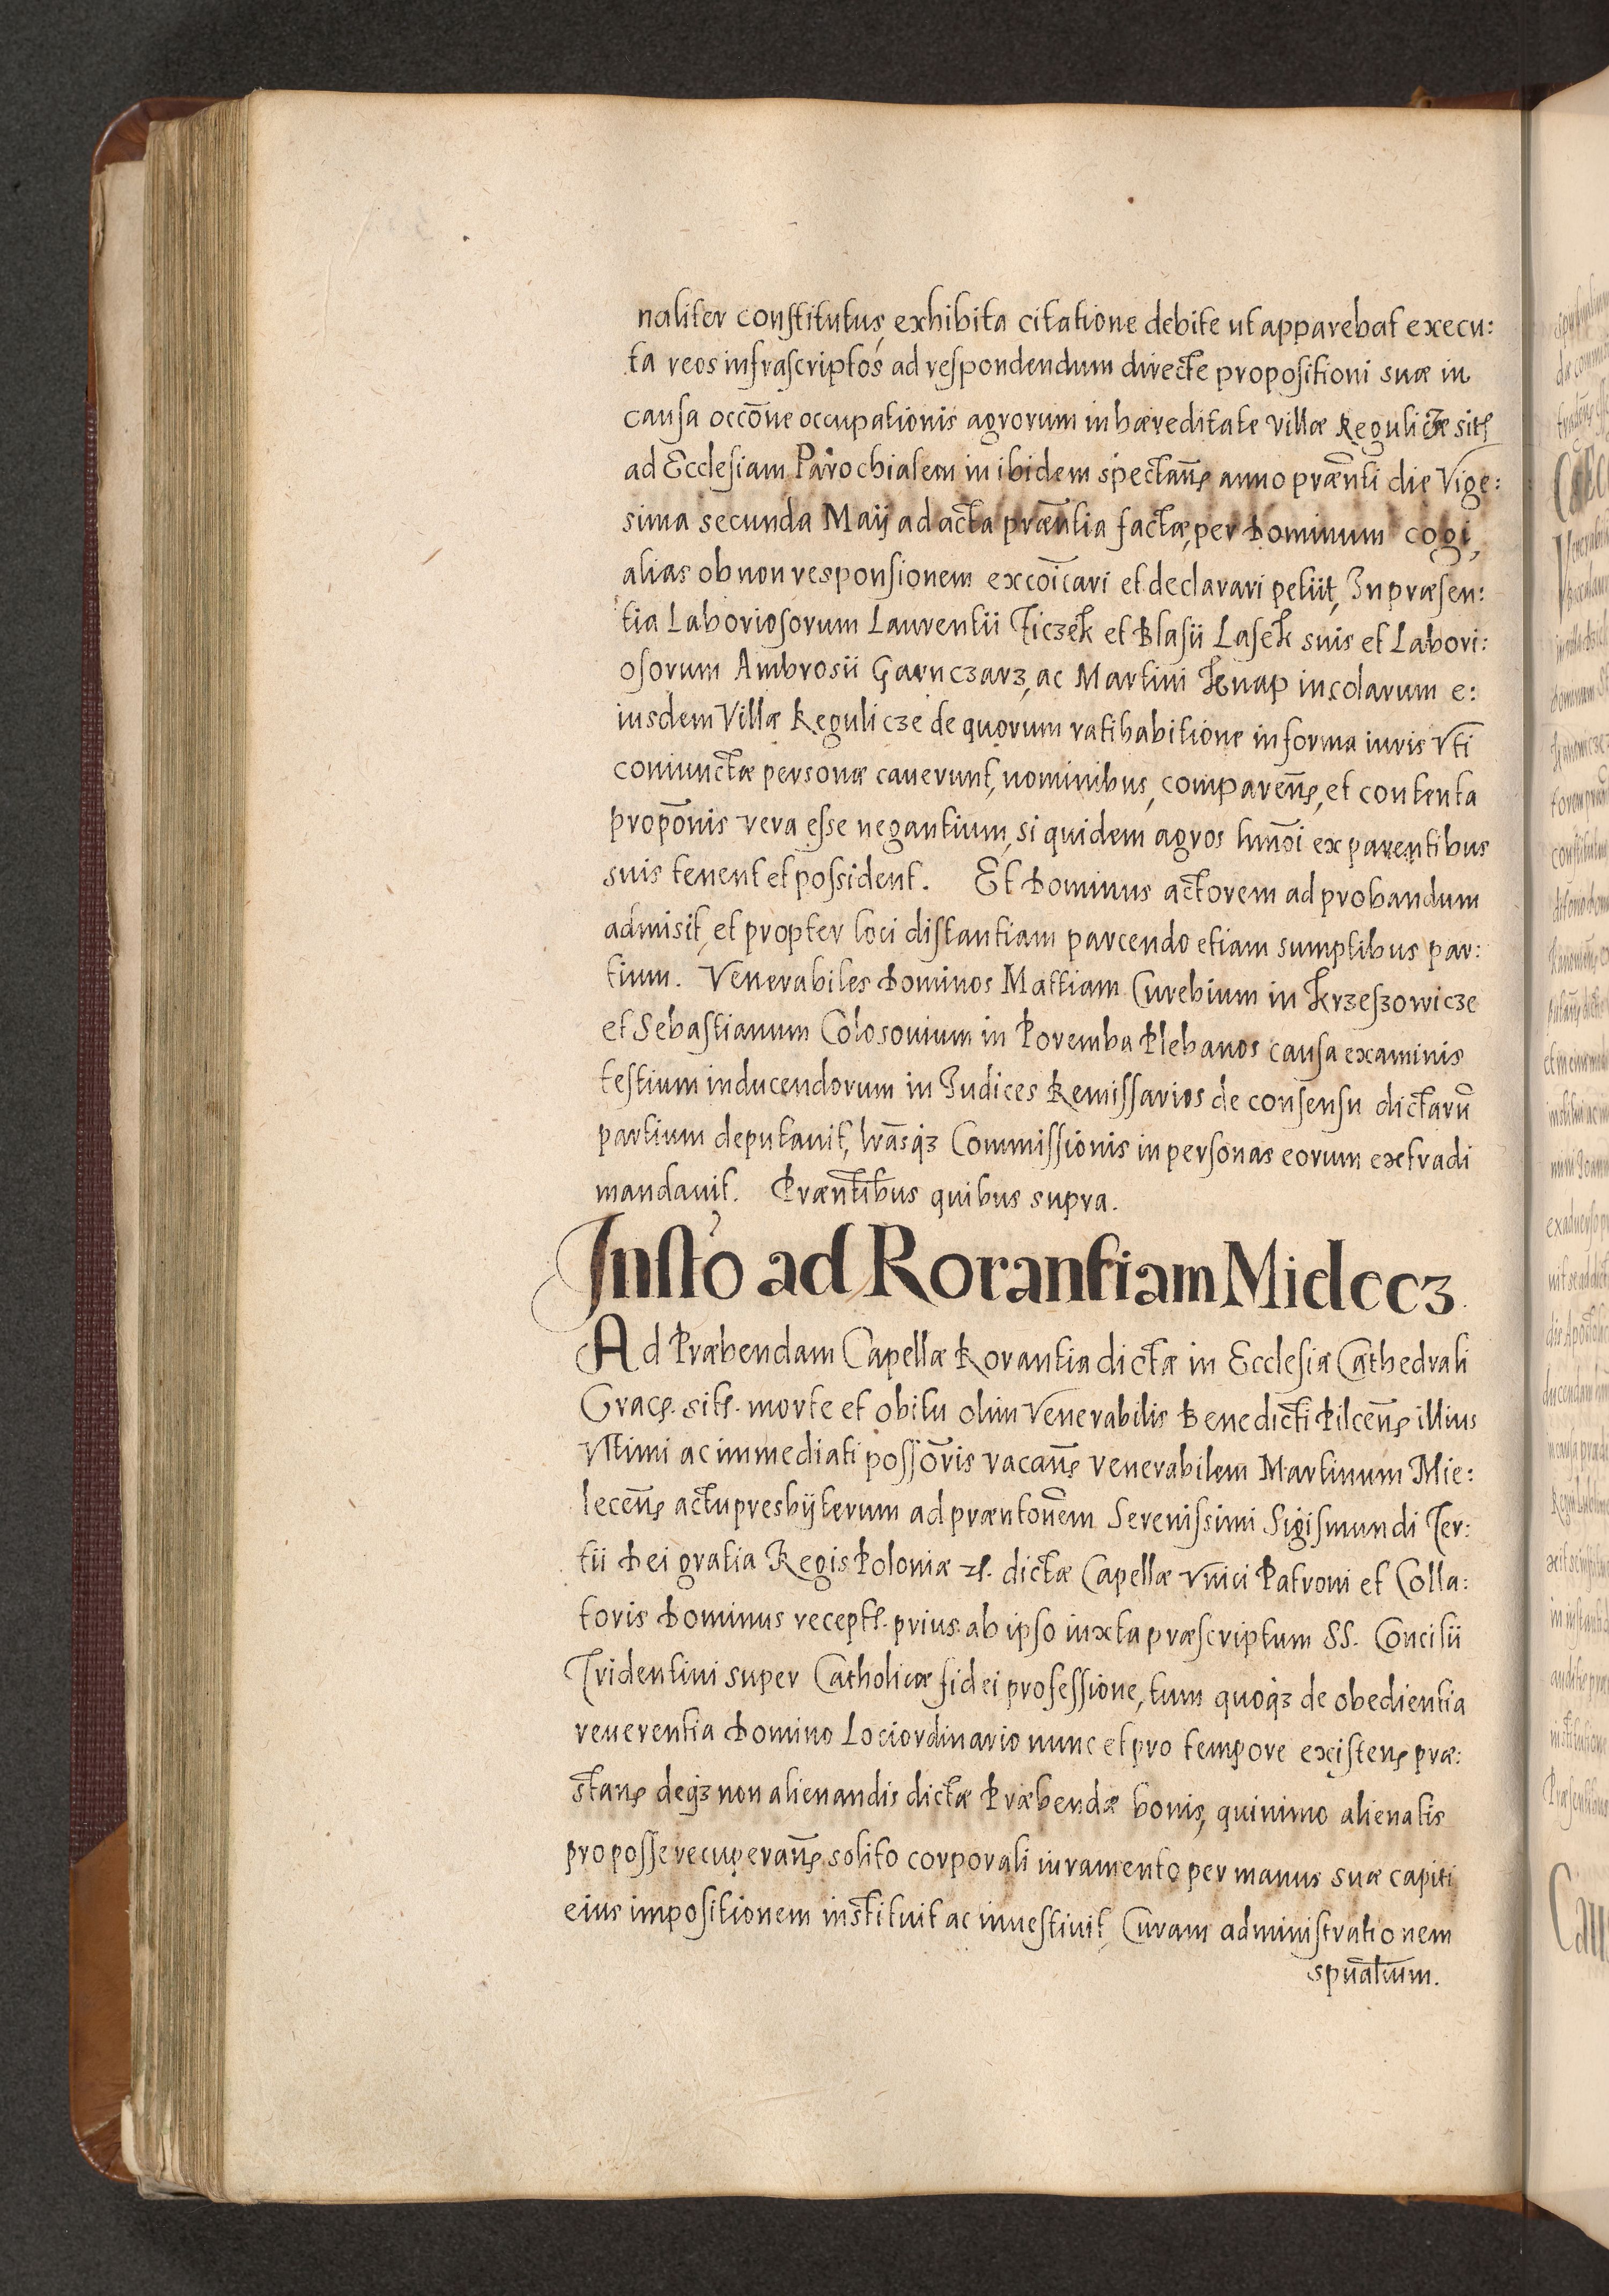 naliter constitutus, exhibita citatione debite ut apparebat execu:
ta reos infrascriptos ad respondendum directe propositioni suæ in
causa occōne occupationis agrorum in hæreditate villæ Regulicze sitꝭ
ad Ecclesiam Parochialem in ibidem spectan̄ꝭ anno præn̄ti die Vige:
sima secunda Maij ad acta præn̄tia factæ, per Dominum cogi,
alias ob non responsionem excoīcari et declarari petiit, In præsen:
tia Laboriosorum Laurentii Ticzek et Blasii Lasek suis et Labori:
osorum Ambrosii Garnczarz, ac Martini Knap incolarum e:
iusdem Villæ Regulicze de quorum ratihabitione in forma iuris Vti
coniunctæ personæ cauerunt, nominibus, comparen̄ꝭ, et contenta
propōnis vera esse negantium, si quidem agros hmōi ex parentibus
suis tenent et possident. Et Dominus actorem ad probandum
admisit, et propter loci distantiam parcendo etiam sumptibus par:
tium. Venerabiles Dominos Mattiam Curebium in Krzeszowicze
et Sebastianum Colosouium in Poremba Plebanos causa examinis
testium inducendorum in Iudices Remissarios de consensu dictarū
partium deputauit, lrāsqȝ Commissionis in personas eorum extradi
mandauit. Præn̄tibus quibus supra.
Insto ad Rorantiam Midccz.
Ad Præbendam Capellæ Rorantia dictæ in Ecclesia Cathedrali
Gracꝭ. sitꝭ. morte et obitu olim Venerabilis Benedicti Pilcen̄ꝭ illius
Vltimi ac immediati possōris vacan̄ꝭ venerabilem Martinum Mie:
lecen̄ꝭ actu presbÿterum ad præntōnem Serenissimi Sigismundi Ter:
tii Dei gratia Regis Poloniæ ꝛꝭ. dictæ Capellæ Vnici Patroni et Colla:
toris Dominus receptꝭ. prius. ab ipso iuxta præscriptum SS. Concilii
Tridentini super Catholicæ fidei professione, tum quoqȝ de obedientia
reuerentia Domino Lociordinario nunc et pro tempore existenꝭ præ:
stanꝭ deqȝ non alienandis dictæ Præbendæ bonis, quinimo alienatis
pro posse recuperan̄ꝭ solito corporali iuramento per manus suæ capiti
eius impositionem instituit ac inuestiuit, Curam administrationem
spūalium.